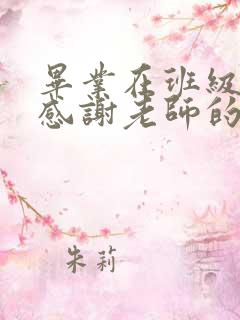 畢業在班級
感謝老師的
朱莉